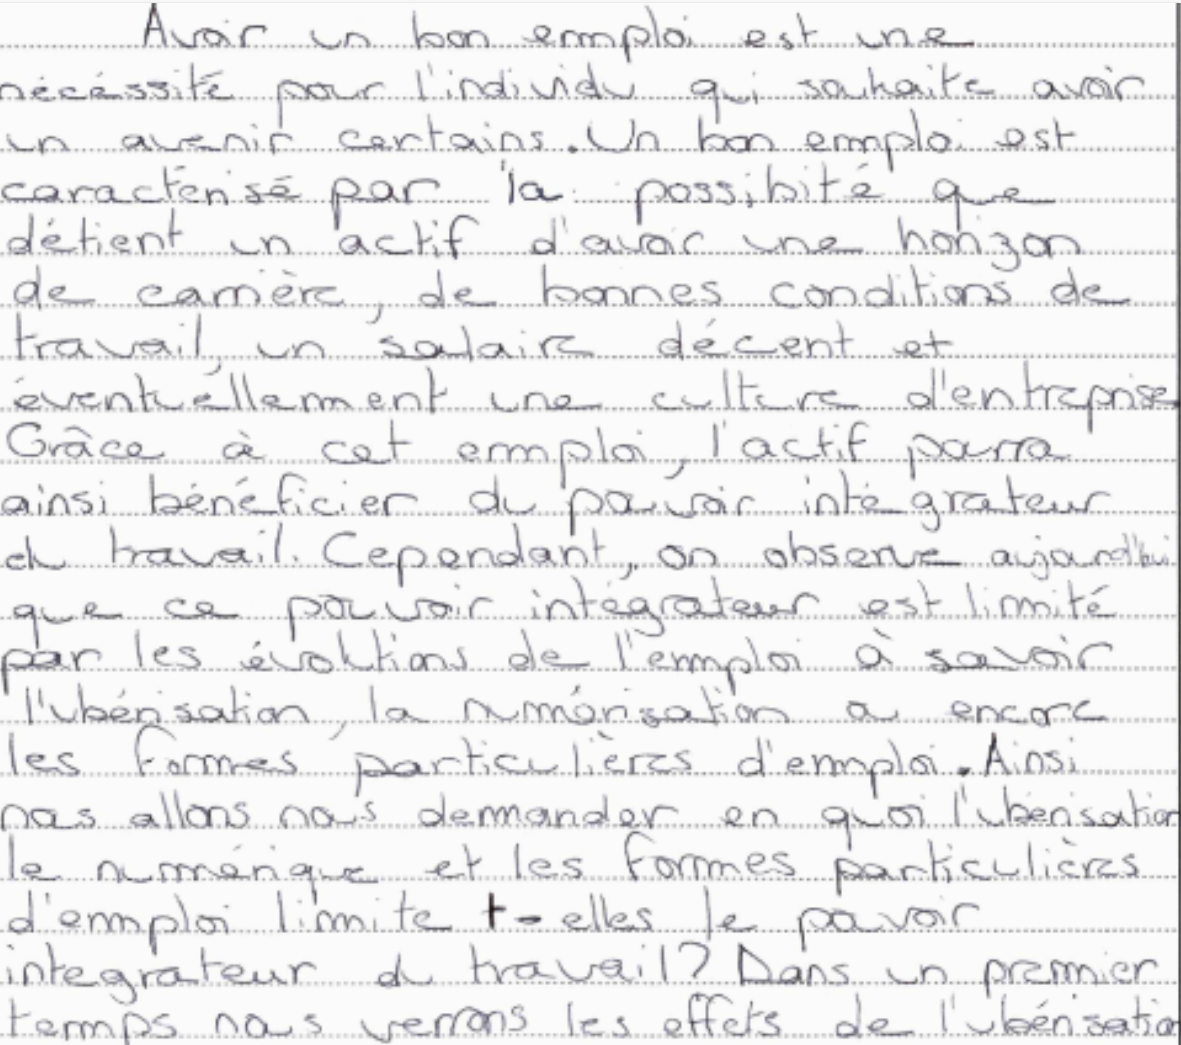 Avoir un bon emploi est une
nécéssité pour l'individu qui souhaite avoir
un avenir certains. Un bon emploi est
caractérisé par la possibité que
détient un actif d'avoir une horizon
de carrière, de bonnes conditions de
travail, un salaire décent et
éventuellement une culture d'entreprise.
Grâce à cet emploi, l'actif pourra
ainsi bénéficier du pouvoir intégrateur
du travail. Cependant, on observe aujourd'hui
que ce pouvoir intégrateur est limité
par les évolutions de l'emploi à savoir
l'ubérisation, la numérisation ou encore
les formes particulières d'emploi. Ainsi
nous allons nous demander en quoi l'ubérisation
le numérique et les formes particulières
d'emploi limite t-elles le pouvoir
integrateur du travail? Dans un premier
temps nous verrons les effets de l'ubérisation